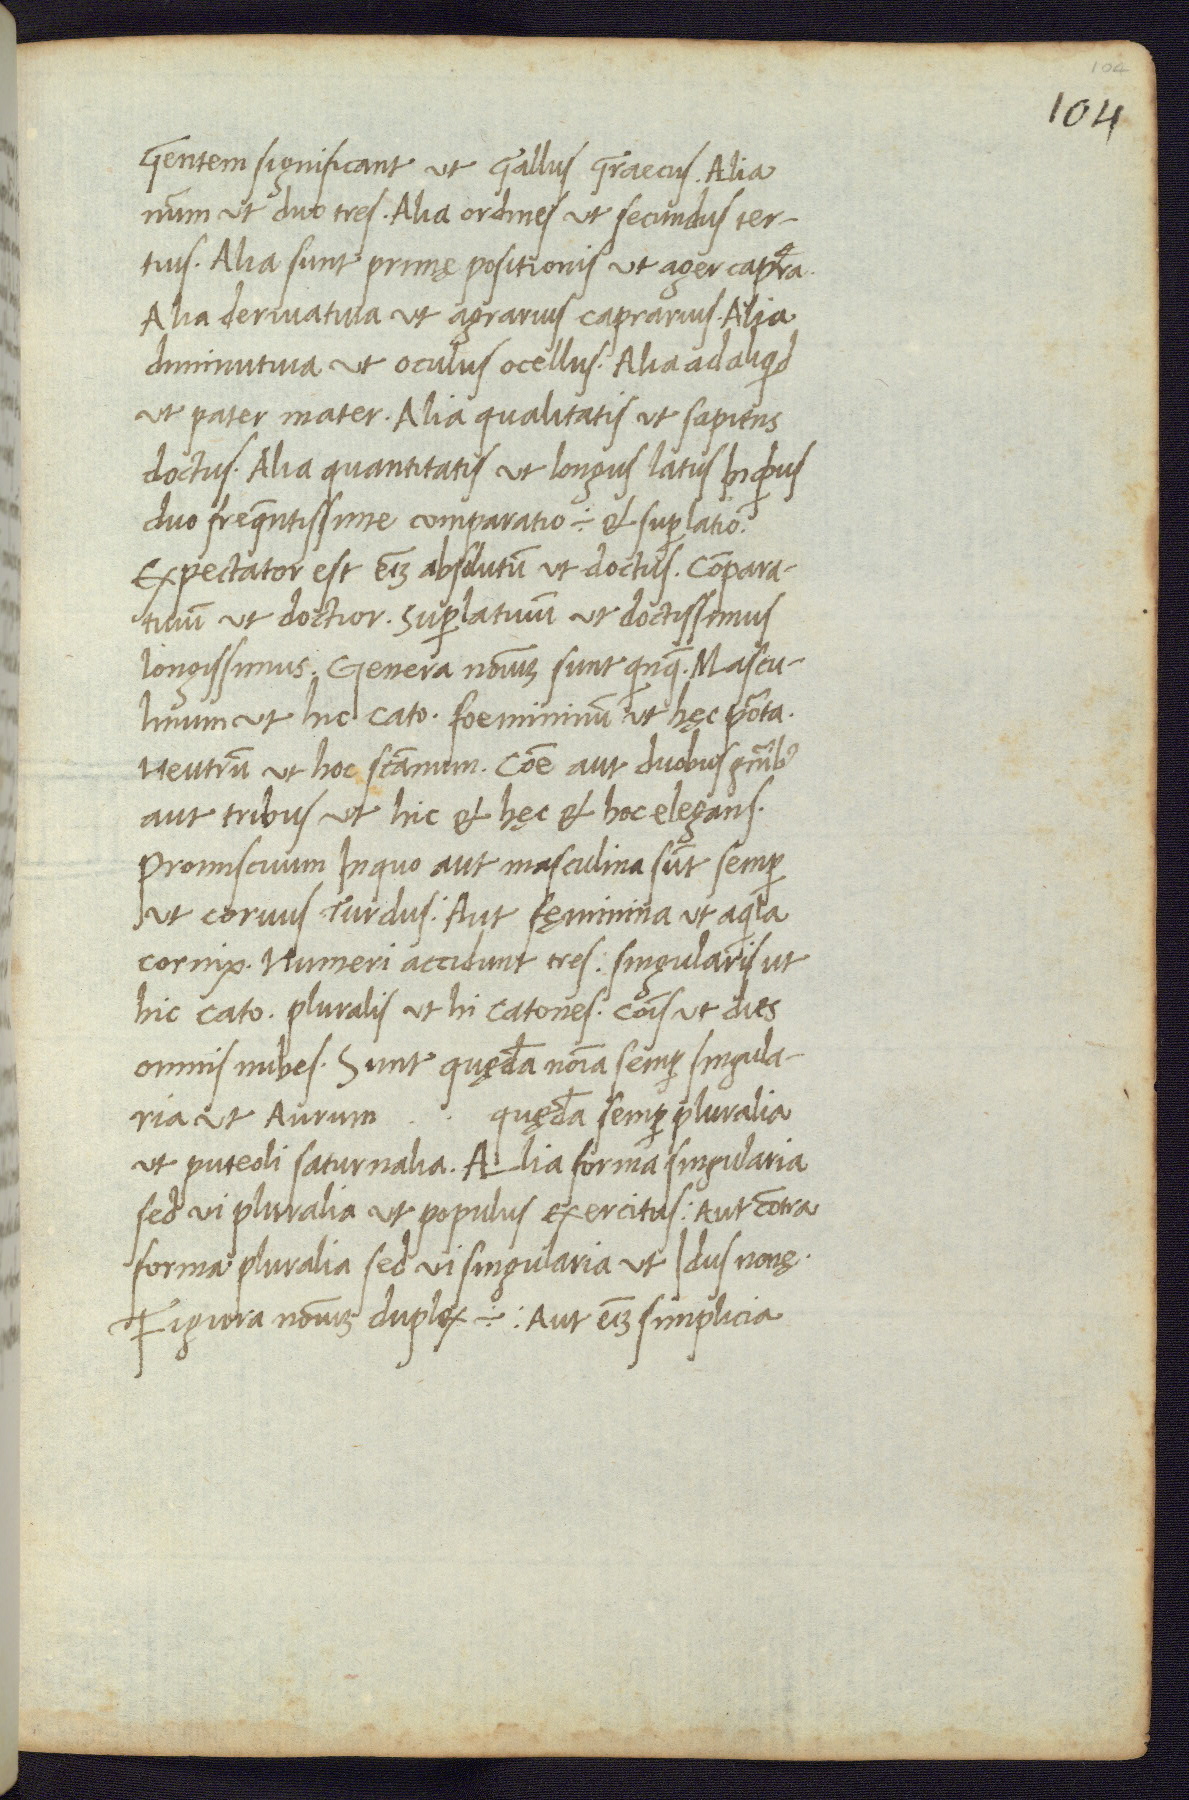 104
104
Gentem significant ut Gallus Graecus. Alia
num̄ ut duo tres. Alia ordines ut secundus ter-
tius. Alia sunt primę positionis ut ager capra.
Alia deriuatiua ut agrarius caprarius. Alia
diminutiua ut oculus ocellus. Alia ad aliqd
ut pater mater. Alia qualitatis ut sapiens
doctus. Alia quantitatis ut longus latus In qbus
duo freqentissime comparatio ÷ & suplatio.
Expectator est em̄ absolutū ut doctus. Cōpara-
tiuū ut doctior. Suplatiuū ut doctissimus
longissimus. Genera noīuꝫ sunt qnq. Mascu-
linum ut hic Cato. foemininū ut hęc porta.
Neutrū ut hoc scānum. Cōe aut duobus gn̄ib;
aut tribus ut hic & hęc & hoc elegans.
Promiscuum In quo aut masculina sūt semp
ut coruus Turdus: Aut fęminina ut aqla
cornix. Numeri accidunt tres: singularis ut
hic Cato. pluralis ut hi Catones. cōis ut dies
omnis nubes. Sunt quędā noīa semp singula-
ria ut Aurum . . quędā semp pluralia
ut puteoli saturnalia. Alia forma singularia
sed ui pluralia ut populus exercitus: Aut cōtra
forma pluralia sed ui singularia ut Idus nonę.
Figura noīuꝫ duplex ÷: Aut em̄ simplicia